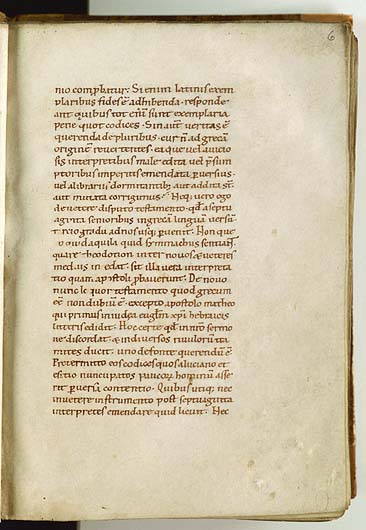 6
nio comp̄batur. Si enim latinis exem
plaribus fides ē adhibenda. responde
ant quibus. tot eni͂ sunt exemplaria
pene quot codices. Sin aut̄ veritas ē
querenda de pluribus. cur n̄ ad grecā
origine͂ revertentes. ea que vel a vicio
sis interpretibus male edita. vel p̄sum
ptoribus imperitis emendata p̄versius.
vel a librariis dormitantib; aut addita sȓ.
aut mutata corrigimus?
de vetere disputo testamento. qd̄ a septu
aginta senioribus in grecā linguā versū
t̄cio gradu ad nos usq; p̄venit. Non que
ro quid aquila quid simmachus sentiant.
quare theodotion inter novos & veteres
medius incedat. sit illa vera interpreta
tio quam apostoli p̄baverunt. De novo
nunc loquor testamento quod grecum
eē non dubiū ē. excepto apostolo matheo
qui primus in iudea eugl̄m xp̄i hebraicis
litteris edidit. Hoc certe qd̄ in nr̄o sermo
ne discordat. & in diversos rivulorū tra
mites ducit. uno de fonte querendū ē.
Pretermitto eos codices quos a luciano et
esitio nuncupatos paucorū hominū asse
rit p̄versa contentio. Quibus utiq; nec
in vetere instrumento post septuaginta
interpretes emendare quid licuit. Nec